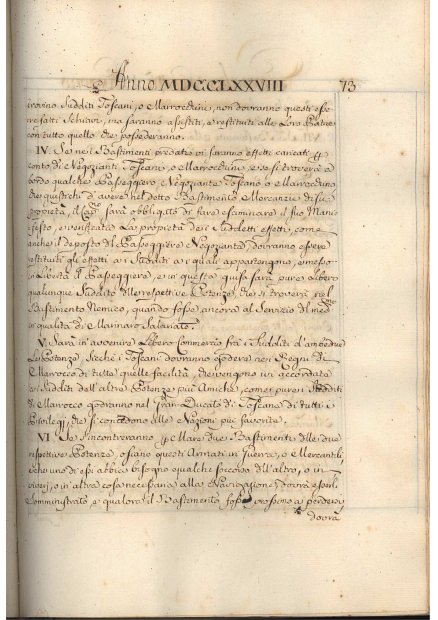 Anno MDCCLXXVIII 73
trovino Sudditi Toscani, o Marrocchini, non dovranno questi esse
re fatti Schiavi, ma saranno assistiti, e restituiti alle Loro Patrie
con tutto quello che possederanno.
IV. Se nei Bastimenti predati vi saranno effetti caricati p
conto di Negozianti Toscani, o Marrocchini, e se si troverà a
bordo qualche Passeggiero, e Negoziante Toscano o Marrocchino
che giustifichi d'avere nel detto Bastimento Mercanzie di sua
proprietà, il Cap. sarà obbligato di fare esaminare il suo Mani
festo, e verificata La proprietà dei suddetti effetti, come
anche il deposto del Passeggiero e Negoziante, dovranno essere
restituiti gli effetti ai Sudditi ai quale appartengono, e messo
in Libertà il Passeggiero, e in questa guisa sarà pure Libero
qualunque Suddito delle respettive Potenze, che si troverà nel
Bastimento Nemico, quando fosse ancora al Servizio del med
in qualità di Marinaro Salariato.
V. Sarà in avvenire Libero Commercio fra i Sudditi d'amendue
Le Potenze, sicchè i Toscani dovranno godere nei Regni di
Marrocco di tutte quelle facilità, che vengono ivi accordate
ai Sudditi dell'altre Potenze più Amiche, come pure i Sudditi
di Marrocco godranno nel Gran Ducato di Toscana di tutti i
Privilegj, che si concedono alle Nazioni più favorite.
VI. Se s'incontreranno p Mare due Bastimenti delle due
respettive Potenze, o siano questi Armati in Guerra, o Mercantili,
e che uno di essi abbia bisogno qualche soccorso dell'altro, o in
viveri, o in altra cosa necessaria alla Navigazione, dovrà esserli
somministrato, e qualora il Bastimento fosse prossimo a perdersi
dovrà